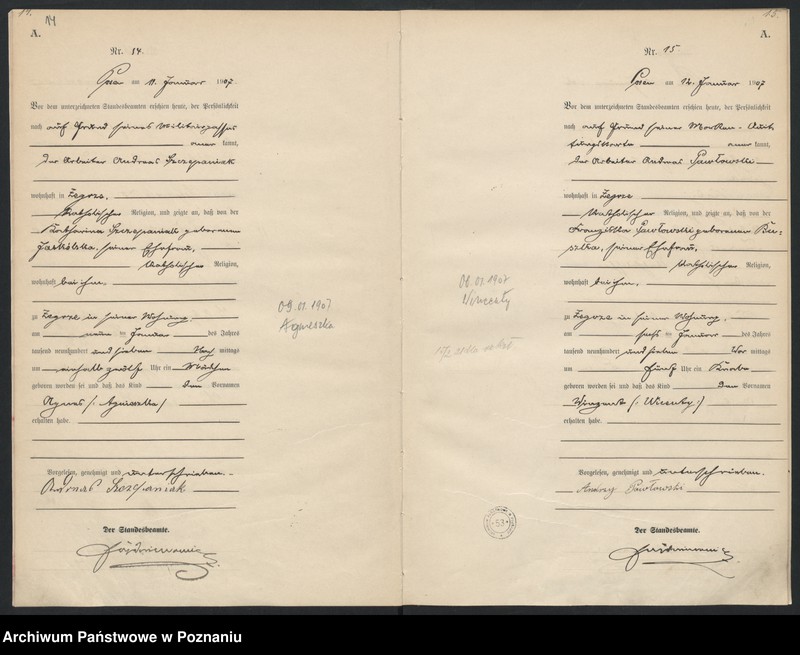 14.
14
A.
Nr. 14.
am 11. Januar 1907.
Vor dem unterzeichneten Standesbeamten erschien heute, der Persönlichkeit
nach auf Grund seines Militärpasses
kannt,
der Arbeiter Andreas Szczepaniak
wohnhaft in Żegrze,
katholischer Religion, und zeigte an, daß von der
Katharina Szczepaniak geborenen
seiner Ehefrau,
katholischer Religion,
wohnhaft bei ihm,
zu Żegrze in seiner Wohnung,
am neun ten Januar des Jahres
tausend neunhundert und sieben Nach mittags
um einhalb zwölf Uhr ein Mädchen
geboren worden sei und daß das Kind den Vornamen
Agnes (: Agnieszka)
erhalten habe.
Vorgelesen, genehmigt und unterschrieben.
Szczepaniak
Der Standesbeamte.
09.01.1907
Agnieszka
15.
A.
Nr. 15
am 12. Januar 1907
Vor dem unterzeichneten Standesbeamten erschien heute, der Persönlichkeit
nach auf Grund seiner Marken-Quit
tungskarte kannt,
der Arbeiter Andreas Pawłowski
wohnhaft in Żegrze
katholischer Religion, und zeigte an, daß von der
Franziska Pawłowski geborenen
seiner Ehefrau,
katholischer Religion,
wohnhaft bei ihm,
zu Żegrze in seiner Wohnung,
am sechs ten Januar des Jahres
tausend neunhundert und sieben Vor mittags
um fünf Uhr ein Knabe
geboren worden sei und daß das Kind den Vornamen
Vinzent (: Wicenty:)
erhalten habe.
Vorgelesen, genehmigt und unterschrieben.
Andrzy Pawłowski
Der Standesbeamte.
06.01.1907
Wincenty
53
Archiwum Państwowe w Poznaniu